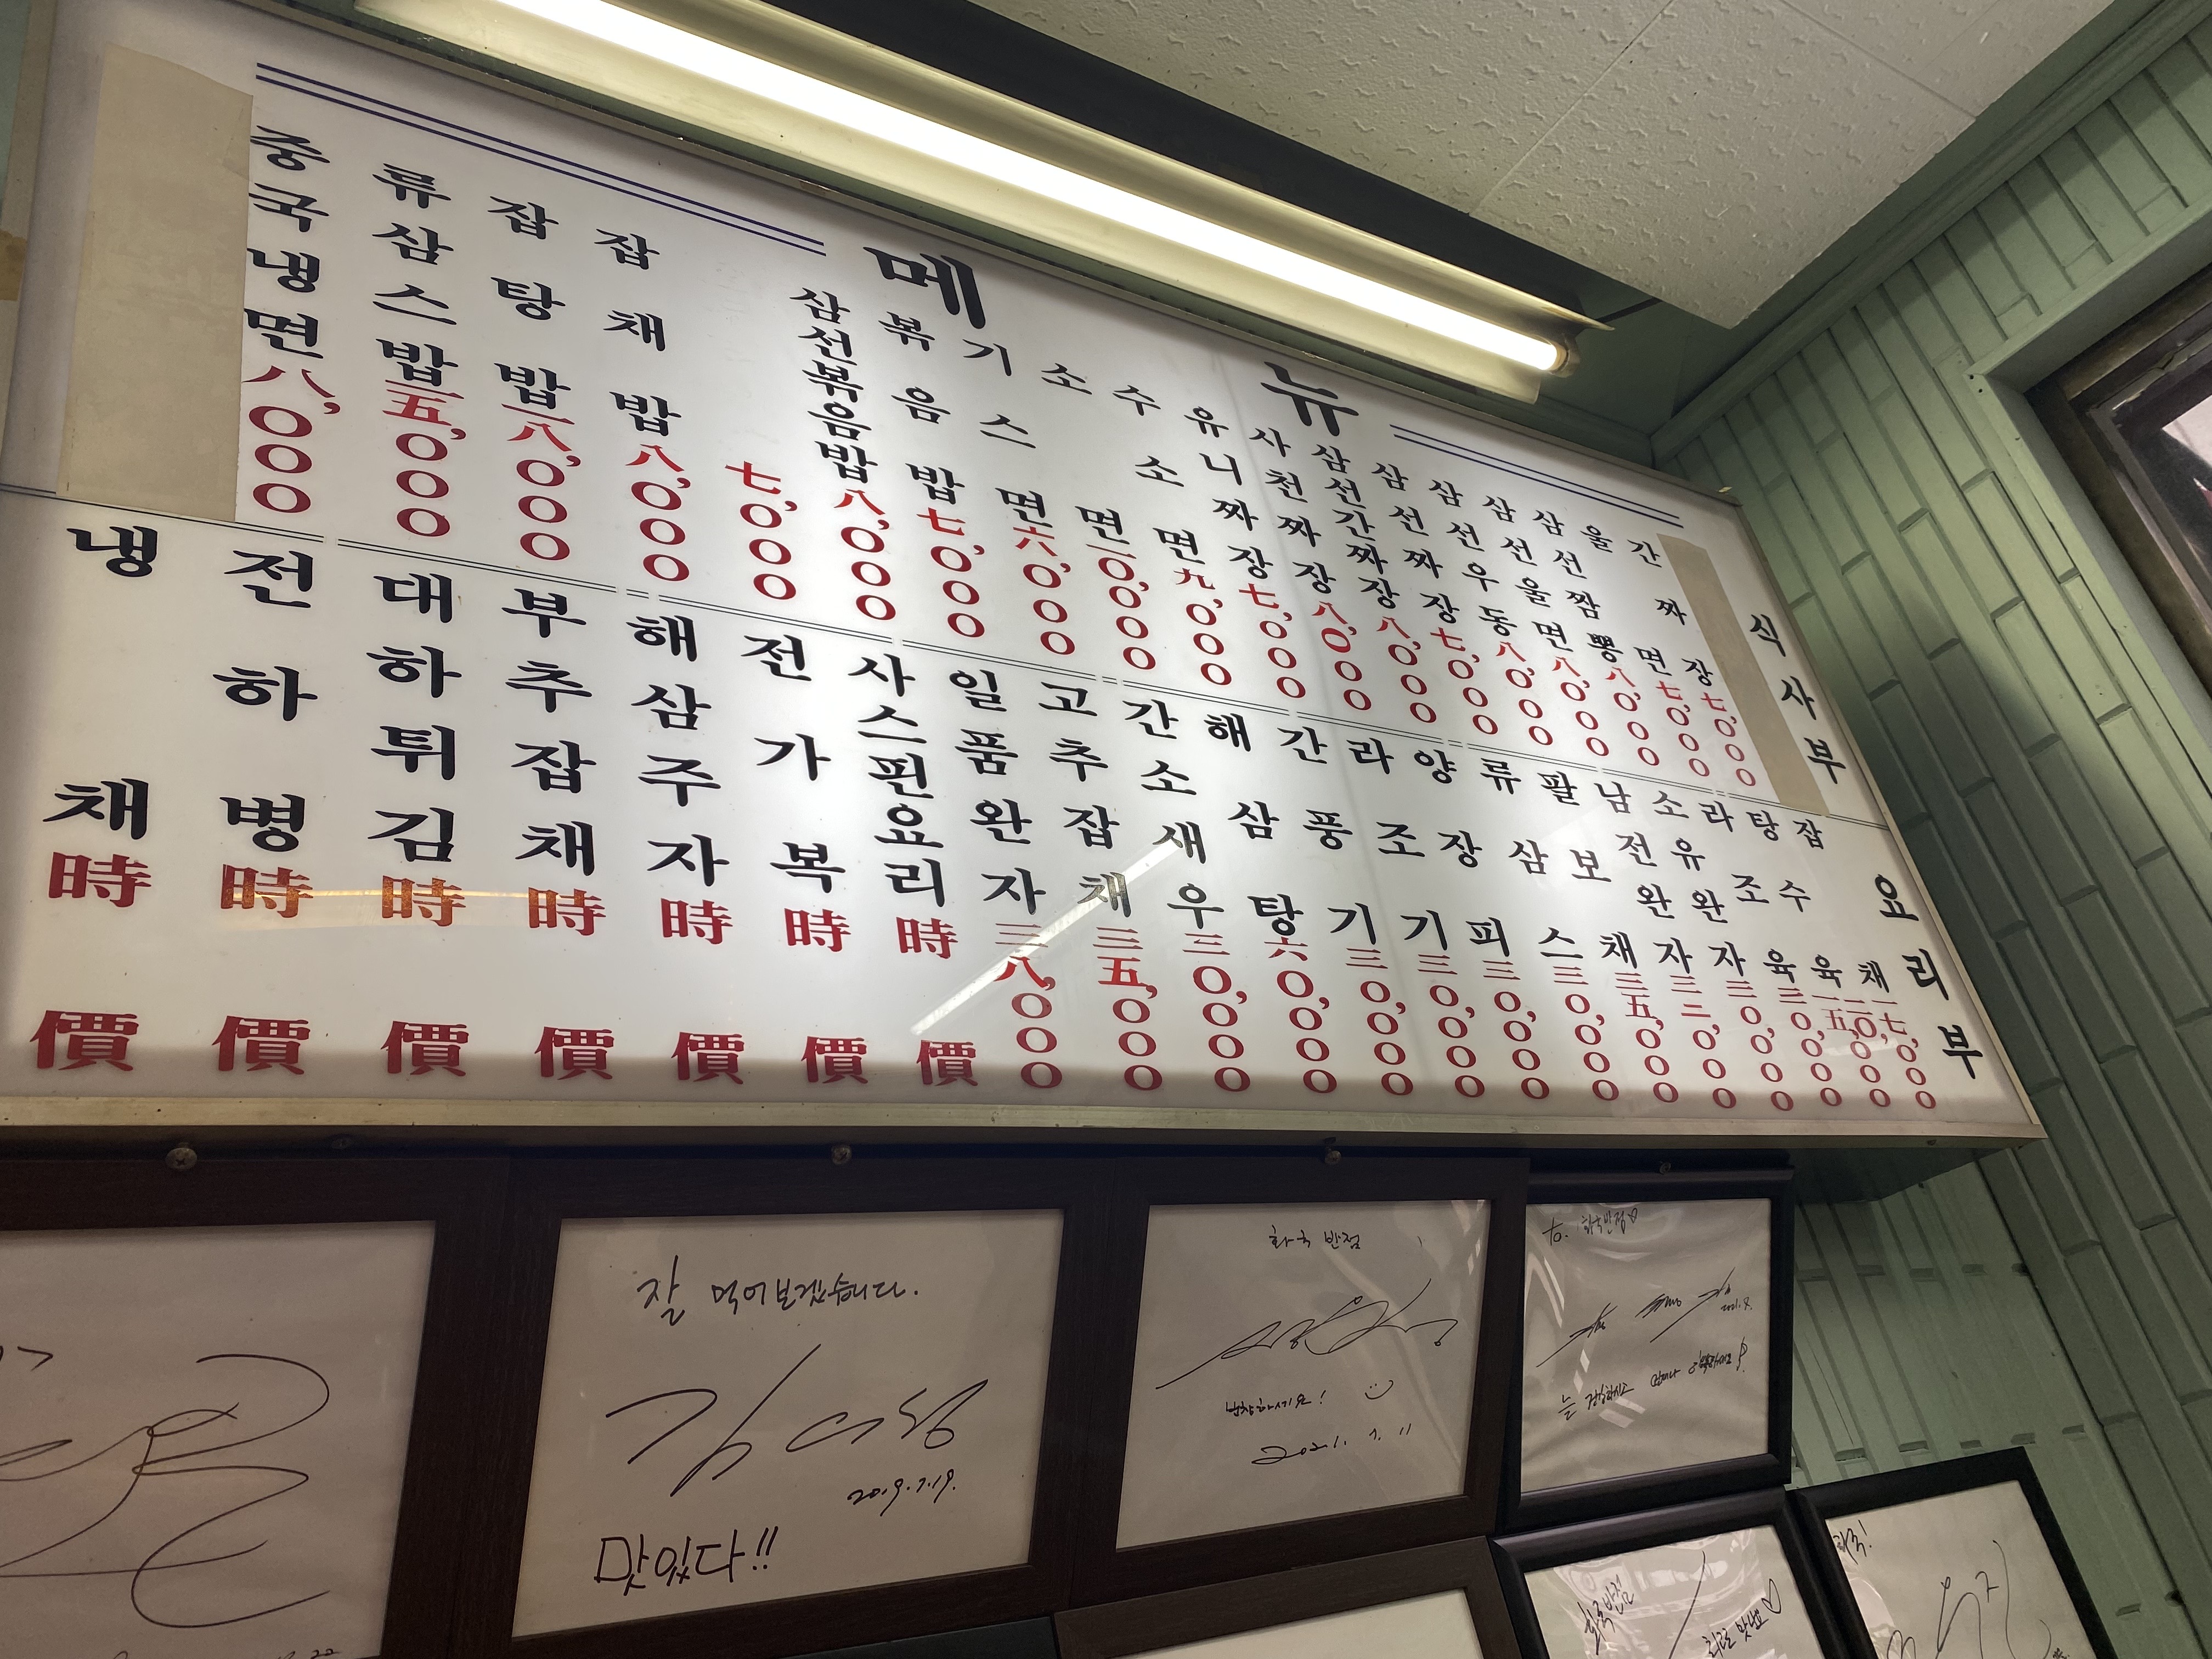 메뉴
식사부
간짜장 七,000
울면 七,000
삼선짬뽕 八,000
삼선울면 八,000
삼선우동 八,000
삼선짜장 七,000
삼선간짜장 八,000
사천짜장 八,000
유니짜장 七,000
수소면 九,000
소면 一0,000
기스면 六,000
볶음밥 七,000
삼선볶음밥 八,000
七,000
잡채밥 八,000
잡탕밥 一八,000
류삼스밥
중국냉면 八,000
요리부
잡채
탕수육
라조육 三0,000
소유완자 三0,000
남전완자 三二,000
팔보채 三五,000
류삼스 三0,000
양장피 三0,000
라조기 三0,000
간풍기 三0,000
해삼탕 六0,000
간소새우 三0,000
고추잡채 三五,000
일품완자 三八,000
사스핀요리 時價
전가복 時價
해삼주자 時價
부추잡채 時價
대하튀김 時價
전하병 時價
냉채 時價
잘 먹어보겠습니다.
2019.7.19.
맛있다!!
화국반점
번창하세요!
2021. 7. 11
to. 화국반점♡
2021.8.
화국반점
최고로 맛나요♡
화국!